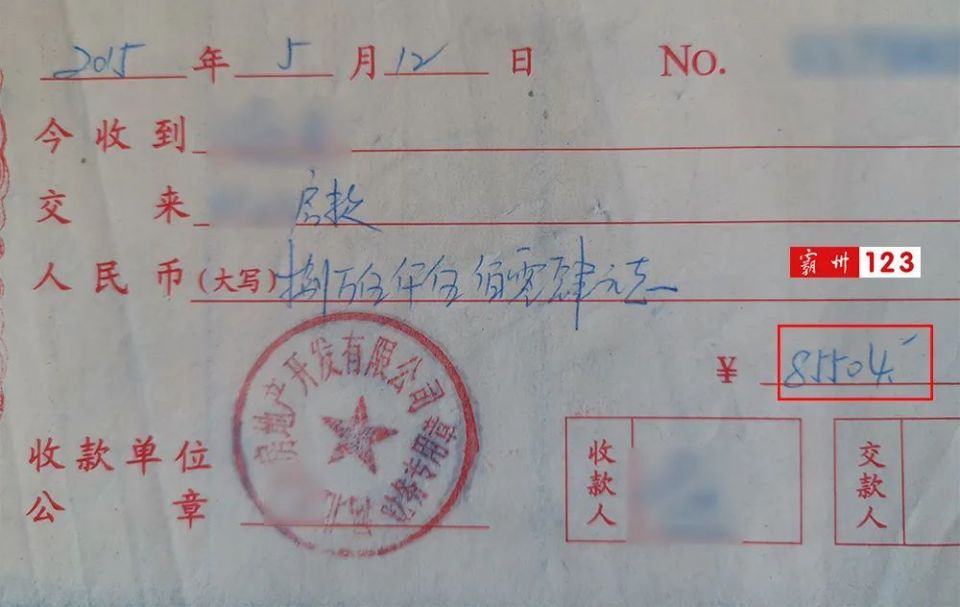 2015年5月12日 No.
今收到
交来 房款
人民币(大写)捌万伍仟伍佰零肆元
霸州123
¥ 85504.
房地产开发有限公司
财务专用章
收款单位
公章
收款人
交款人